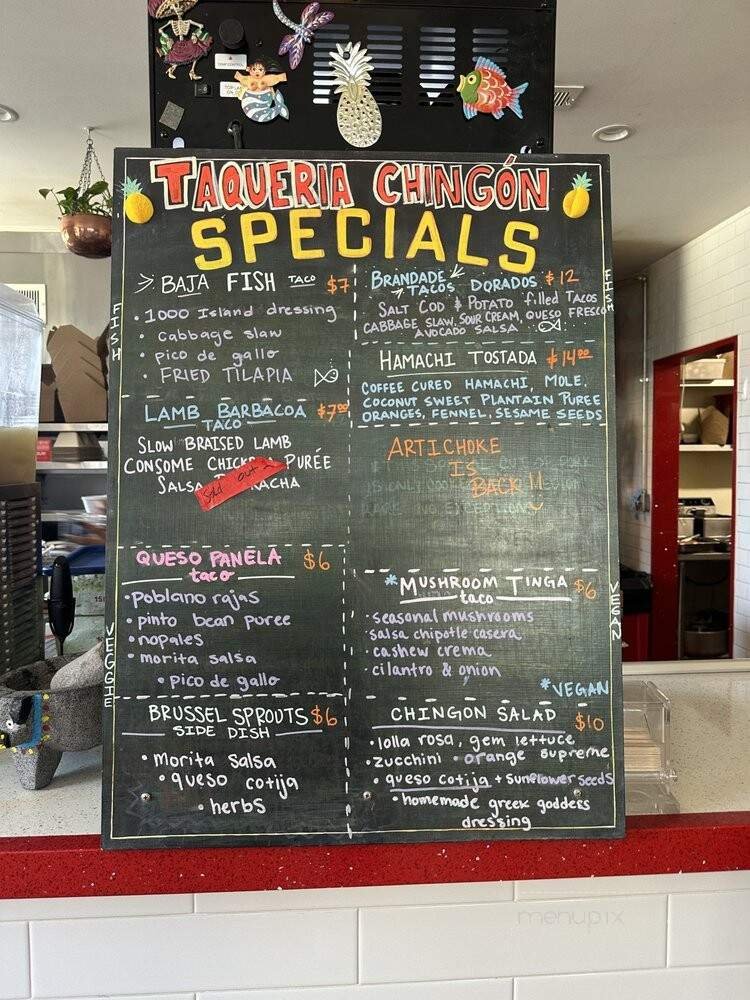 TAQUERIA CHINGÓN
SPECIALS
BAJA FISH TACO $7
• 1000 Island dressing
• cabbage slaw
• pico de gallo
• FRIED TILAPIA
FISH
BRANDADE
TACOS DORADOS $12
SALT COD & POTATO filled TACOS
CABBAGE SLAW, SOUR CREAM, QUESO FRESCO
AVOCADO SALSA
FISH
HAMACHI TOSTADA $14.00
COFFEE CURED HAMACHI, MOLE,
COCONUT SWEET PLANTAIN PUREE
ORANGES, FENNEL, SESAME SEEDS
LAMB BARBACOA $7.00
TACO
SLOW BRAISED LAMB
CONSOME CHICKEN PURÉE
SALSA
Sold out
ARTICHOKE
IS
BACK!!
QUESO PANELA $6
taco
• poblano rajas
• pinto bean puree
• nopales
• morita salsa
• pico de gallo
VEGGIE
*MUSHROOM TINGA $6
taco
• seasonal mushrooms
salsa chipotle casera
• cashew crema
• cilantro & onion
*VEGAN
VEGAN
BRUSSEL SPROUTS $6
SIDE DISH
• morita salsa
• queso cotija
• herbs
CHINGON SALAD $10
• lolla rosa, gem lettuce,
• zucchini • orange supreme
• queso cotija + sunflower seeds
• homemade greek goddess
dressing
menupix